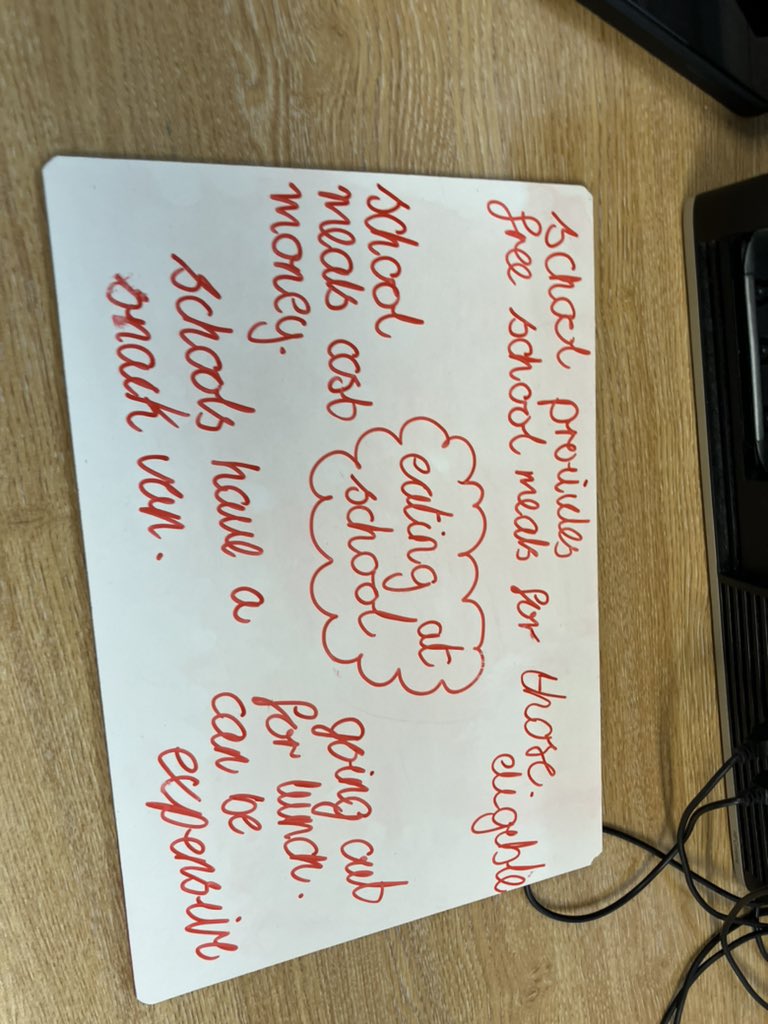 school provides
free school meals for those.
eligible
school
meals cost
money.
eating at
school
schools have a
snack van.
going out
for lunch.
can be
expensive